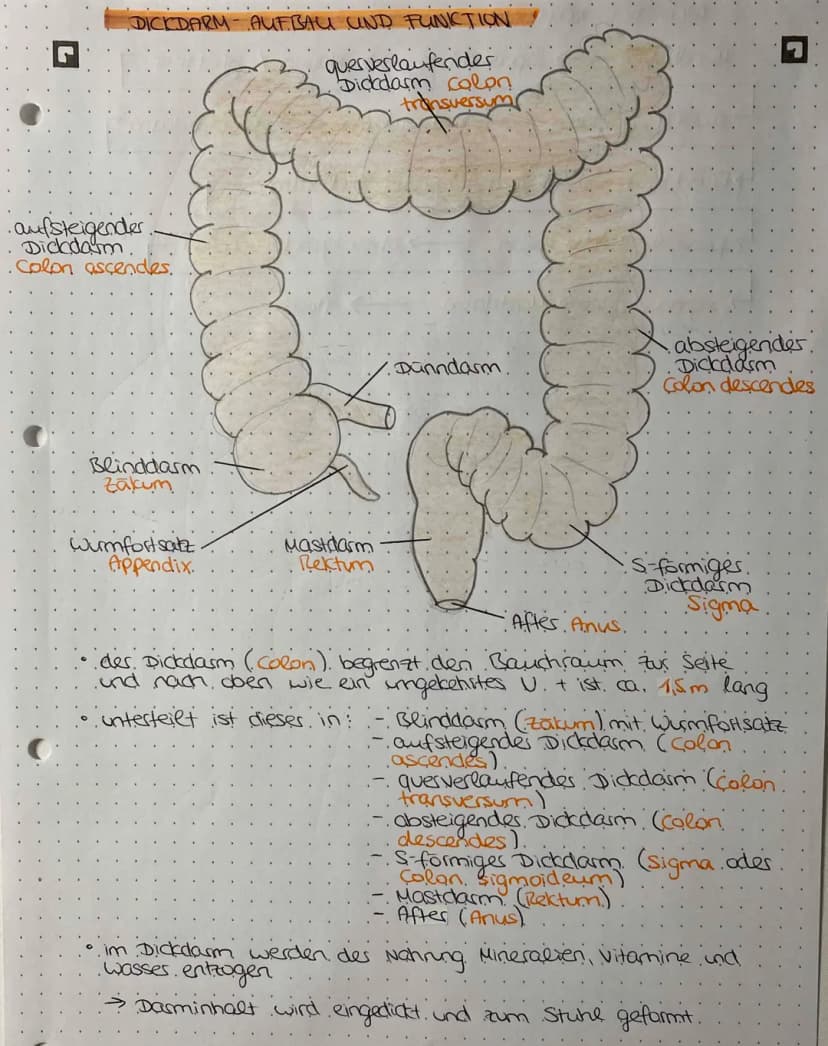 DICKDARM - AUFBAU UND FUNKTION
querverlaufender
Dickdarm Colon
transversum
aufsteigender
Dickdarm
Colon ascendes
Dünndarm
absteigender
Dickdarm
Colon descendes
Blinddarm
Zäkum
Wurmfortsatz
Appendix
Mastdarm
Rektum
S-förmiger
Dickdarm
Sigma
After Anus
• der Dickdarm (Colon) begrenzt den Bauchraum zur Seite
und nach oben wie ein umgekehrtes U + ist ca. 1,5m lang
• unterteilt ist dieser in: - Blinddarm (Zäkum) mit Wurmfortsatz
- aufsteigender Dickdarm (Colon
ascendes)
- querverlaufender Dickdarm (Colon
transversum)
- absteigender Dickdarm (Colon
descendes)
- S-förmiger Dickdarm (Sigma oder
Colon sigmoideum)
- Mastdarm (Rektum)
- After (Anus)
• im Dickdarm werden der Nahrung Mineralien, Vitamine und
Wasser entzogen
→ Darminhalt wird eingedickt und zum Stuhl geformt.